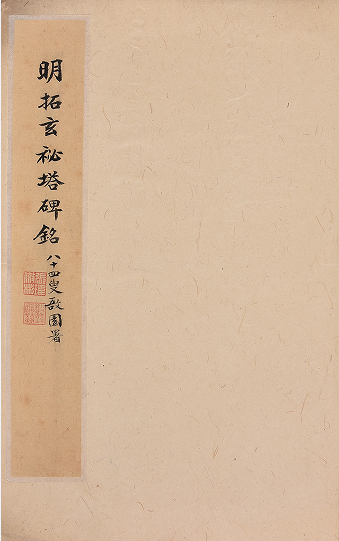 明拓玄祕塔碑銘
八十四叟敔園署